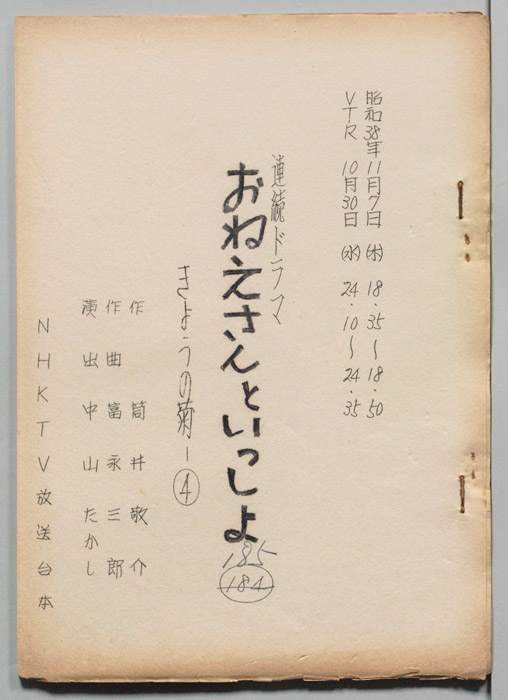 昭和38年11月7日 (木) 18.35〜18.50
VTR 10月30日 (水) 24.10〜24.35
連続ドラマ
おねえさんといっしょ
185
184
きょうの菊-④
作 筒井敬介
作曲 富永三郎
演出 中山たかし
NHKTV放送台本